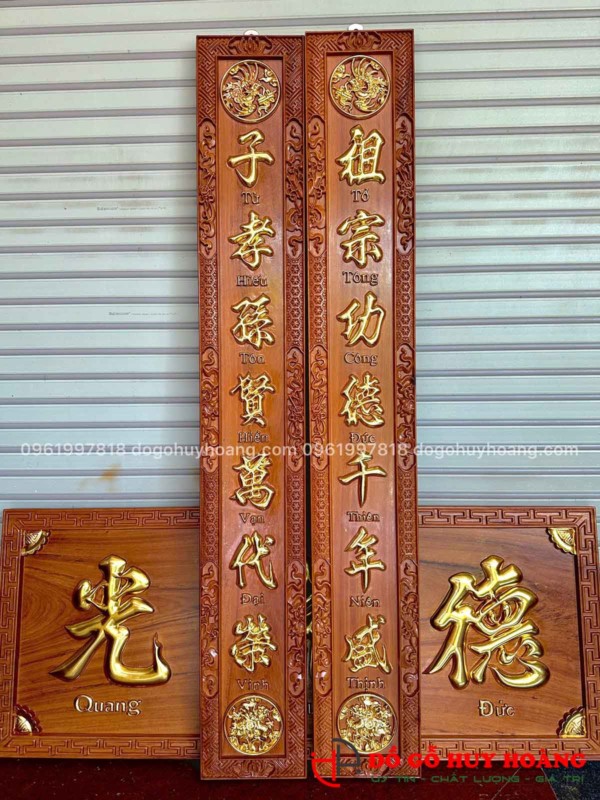 祖
Tổ
宗
Tông
功
Công
德
Đức
千
Thiên
年
Niên
盛
Thịnh
子
Tử
孝
Hiếu
孫
Tôn
賢
Hiền
萬
Vạn
代
Đại
榮
Vinh
德
Đức
光
Quang
0961997818 dogohuyhoang.com 0961997818 dogohuyhoang.com
ĐỒ GỖ HUY HOÀNG
UY TÍN - CHẤT LƯỢNG - GIÁ TRỊ